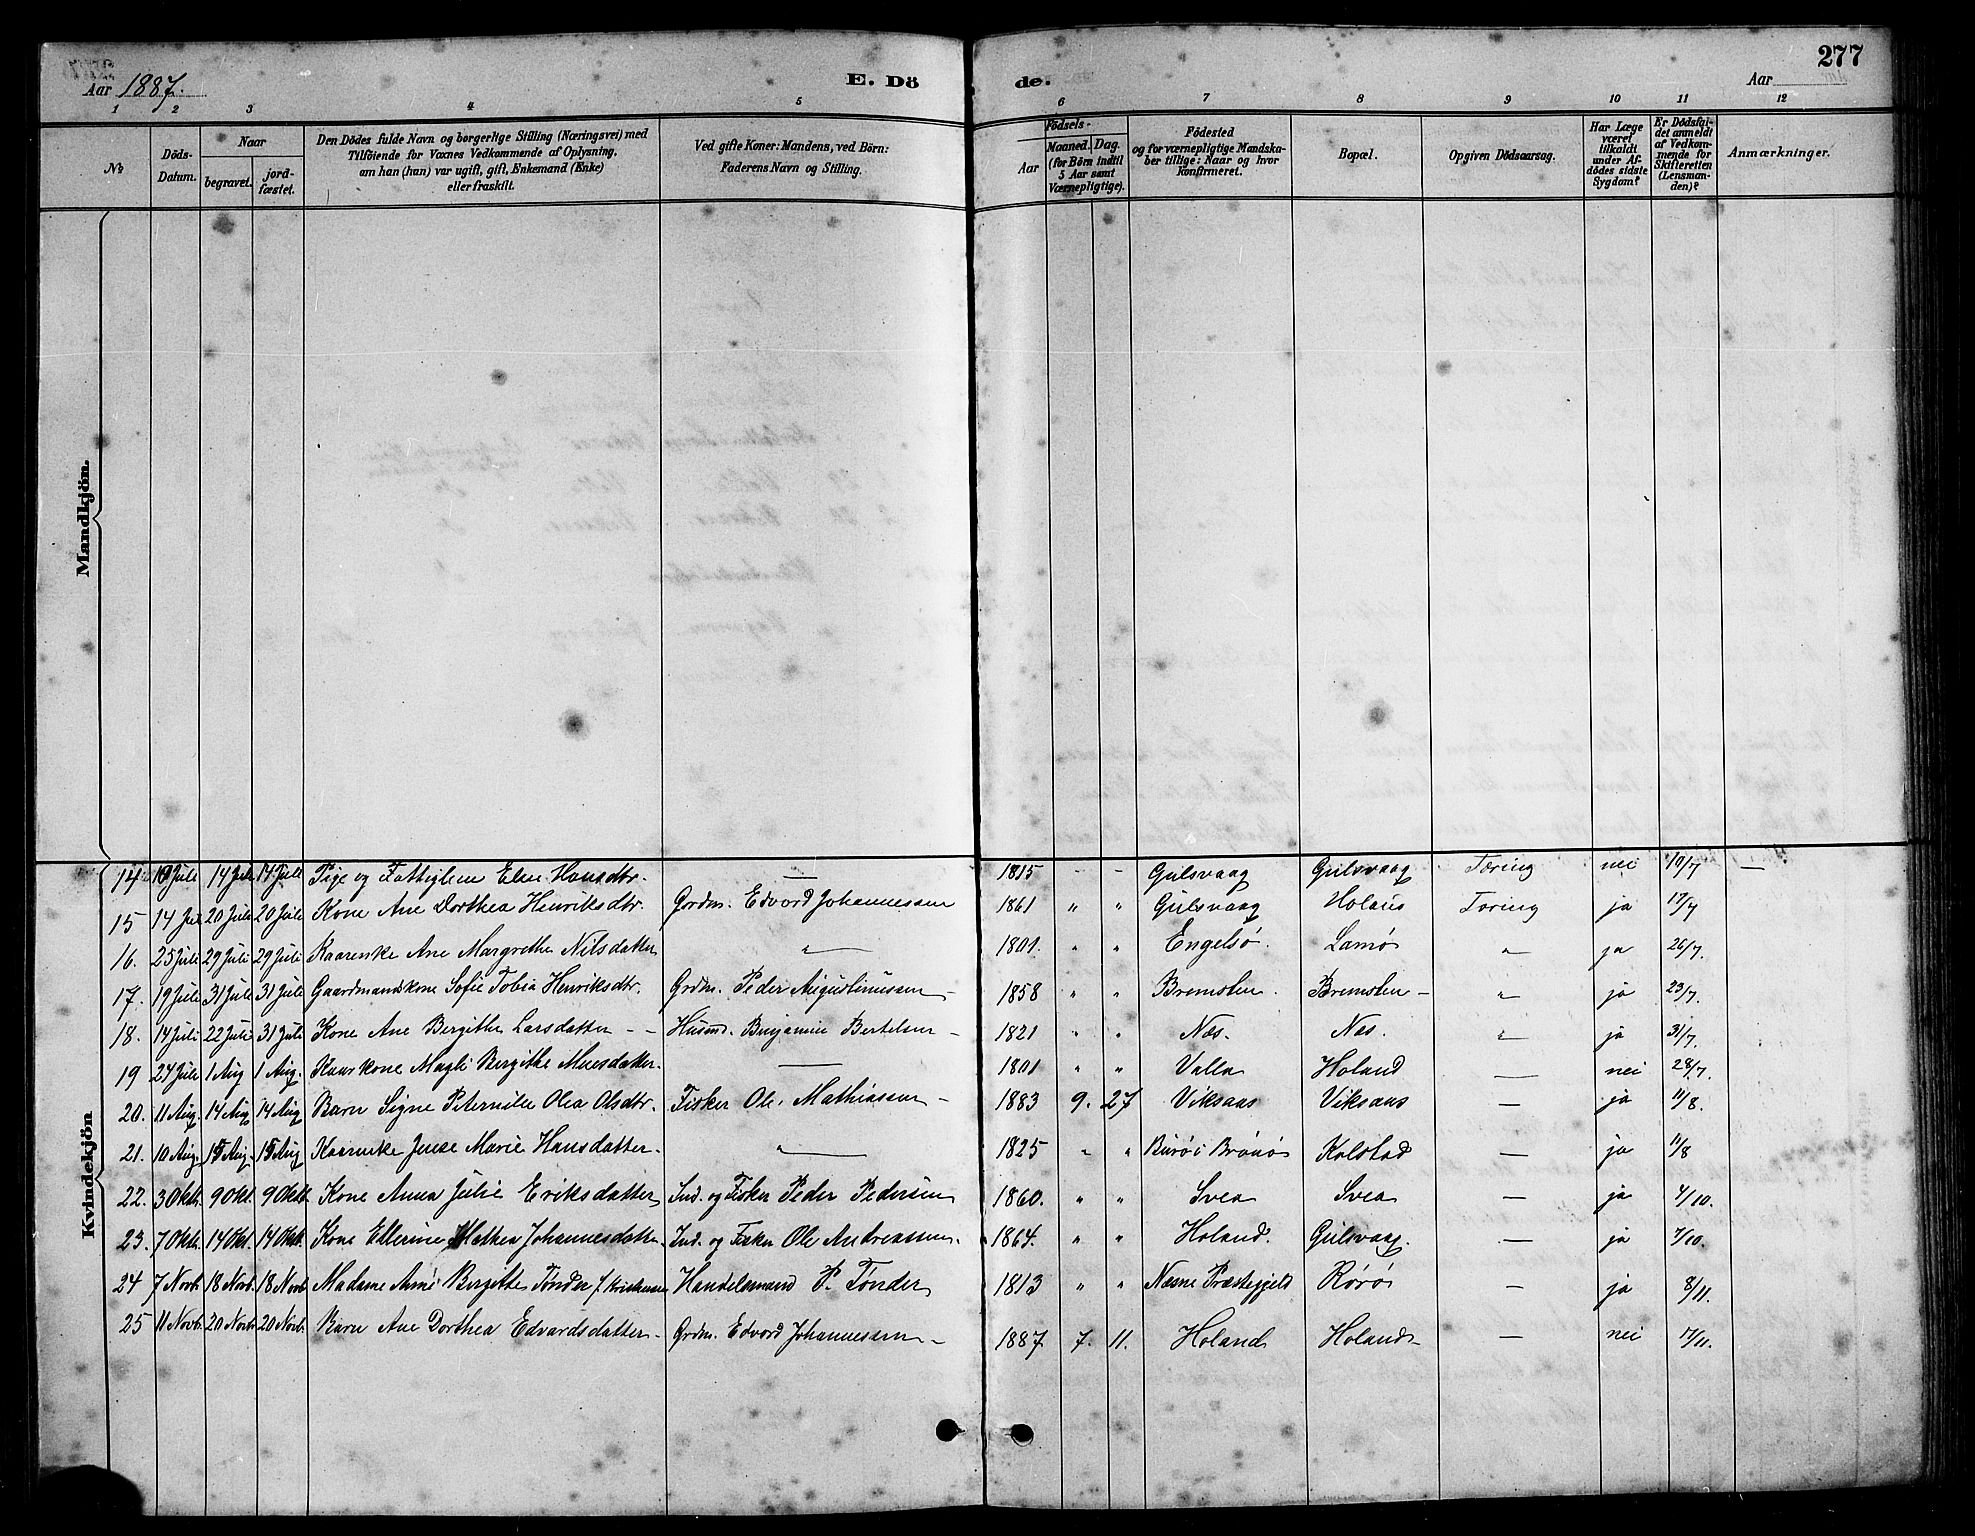 277
Aar 1887. E. Dö de. Aar
1 2 3 4 5 6 7 8 9 10 11 12
№
Döds-Datum.
Naar
begravet.
jord-fæstet.
Den Dödes fulde Navn og borgerlige Stilling (Næringsvei) med
Tilföiende for Voxnes Vedkommende af Oplysning.
om han (hun) var ugift, gift, Enkemand (Enke)
eller fraskilt.
Ved gifte Koner: Mandens, ved Börn:
Faderens Navn og Stilling.
Födsels-
Aar
Maaned. Dag.
(for Börn indtil
5 Aar samt
Værnepligtige).
Födested
og for værnepligtige Mandska-
ber tillige: Naar og hvor
konfirmeret.
Bopæl.
Opgiven Dödsaarsag.
Har Læge
været
tilkaldt
under Af-
dödes sidste
Sygdom?
Er Dödsfal-
det anmeldt
af Vedkom-
mende for
Skifteretten
(Lensman-
den)?
Anmærkninger.
Mandkjön.
Kvindekjön
14 10 Juli 14 Juli 14 Juli Pige og Fattiglem Elen Hansdtr. — 1815 - - Gulsvaag Gulsvaag Tæring nei 10/7 —
15 14 Juli 20 Juli 20 Juli Kone Ane Dorthea Henriksdtr. Grdm. Edvard Johannessen 1861 " " Gulsvaag Holand Tæring ja 17/7
16. 25 Juli 29 Juli 29 Juli Kaarenke Ane Margrethe Nilsdatter " 1801. " " Engelsø. Lamø " ja 26/7.
17. 19 Juli 31 Juli 31 Juli Gaardmandskone Sofie Tobia Henriksdtr. Grdm. Peder Augustinussen — 1858 " " Bremsten. Bremsten — " ja 23/7.
18. 14 Juli 22 Juli 31 Juli Kone Ane Bergithe Larsdatter - - Husmd. Benjamin Bertelsen — 1821 " " Næs. Næs. " ja 31/7.
19 24 Juli 1 Aug 1 Aug. Kaarkone Magli Bergithe Monsdatter. — 1801 " " Valla Holand — nei 28/7.
20. 11 Aug. 14 Aug 14 Aug Barn Signe Peternille Olea Olsdtr. Fisker Ole Mathiassen — 1883 9. 27 Viksaas Viksaas — ja 11/8.
21. 10 Aug. 15 Aug. 15 Aug Kaarenke Jense Marie Hansdatter. " 1825 " " Burø i Brønø Kolstad — ja 11/8
22. 3 Okt. 9 Okt. 9 Okt. Kone Anna Julie Eriksdatter Ind. og Fisker Peder Pedersen 1860. " " Svea Svea — ja 4/10.
23. 7 Okt. 14 Okt. 14 Okt. Kone Ellerine Mathea Johannesdatter. Ind. og Fisker Ole Andreassen. 1864. " " Holand. Gulsvaag. — ja 7/10.
24 7 Novb. 18 Novb. 18 Novb. Madame Anne Bergitte Tønder f. Handelsmand P. Tønder 1813 " " Nesne Præstegjeld Rørø — ja 8/11.
25 11 Novb. 20 Novb. 20 Novb. Barn Ane Dorthea Edvardsdatter — Grdm. Edvard Johannessen — 1887 7. 11. Holand Holand — — nei 17/11.